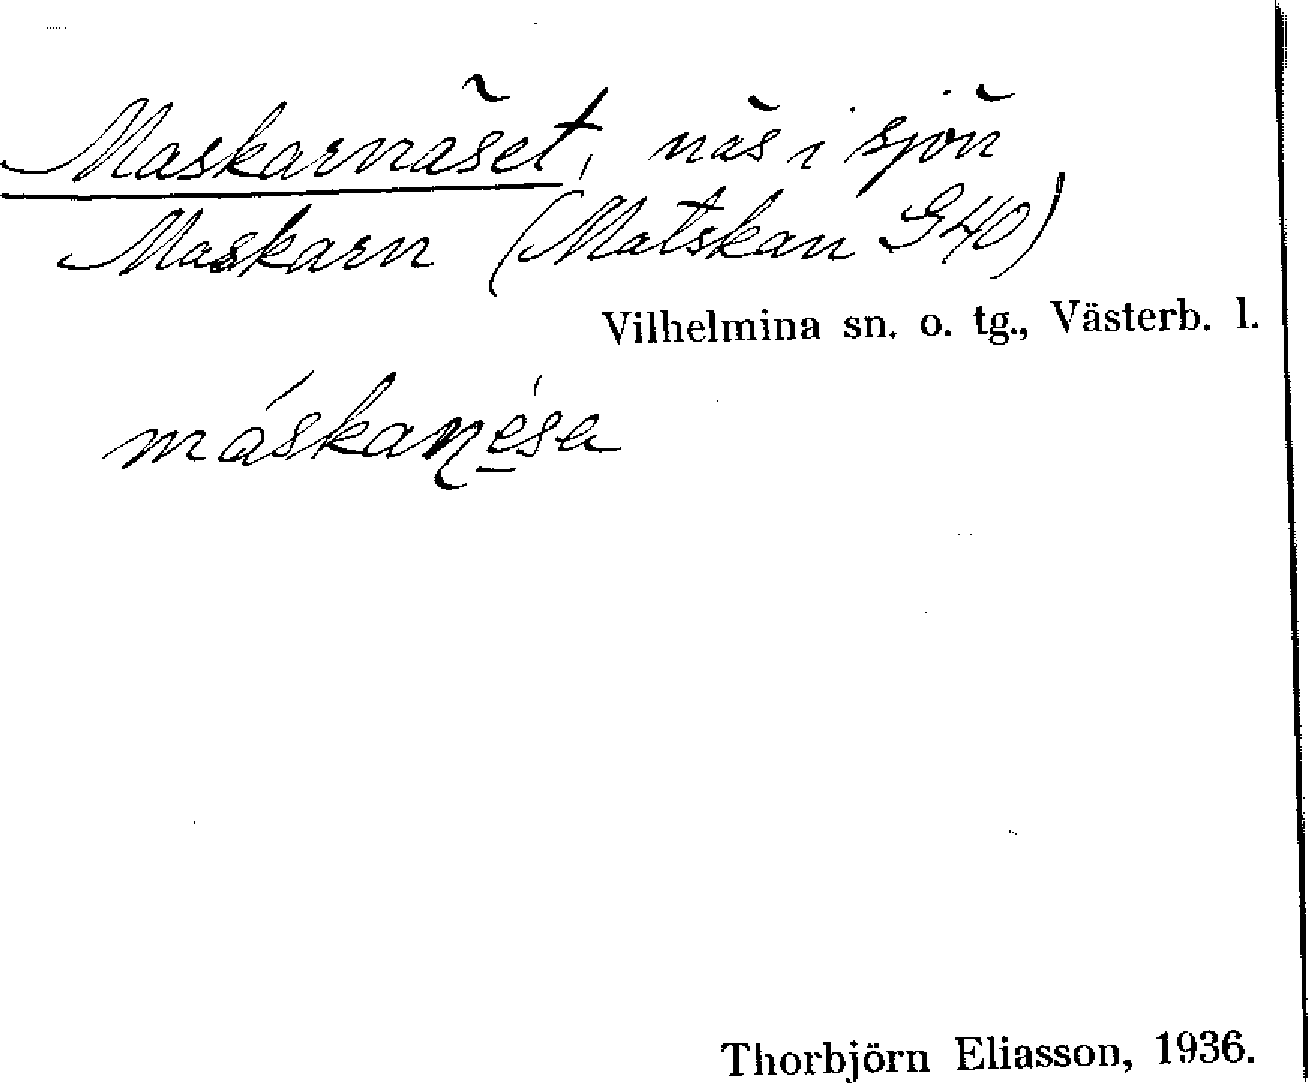 Maskarnäset, näs i sjön
Maskarn (Matskan G40)
Vilhelmina sn. o. tg., Västerb. l.
máskaṇés̱a
Thorbjörn Eliasson, 1936.